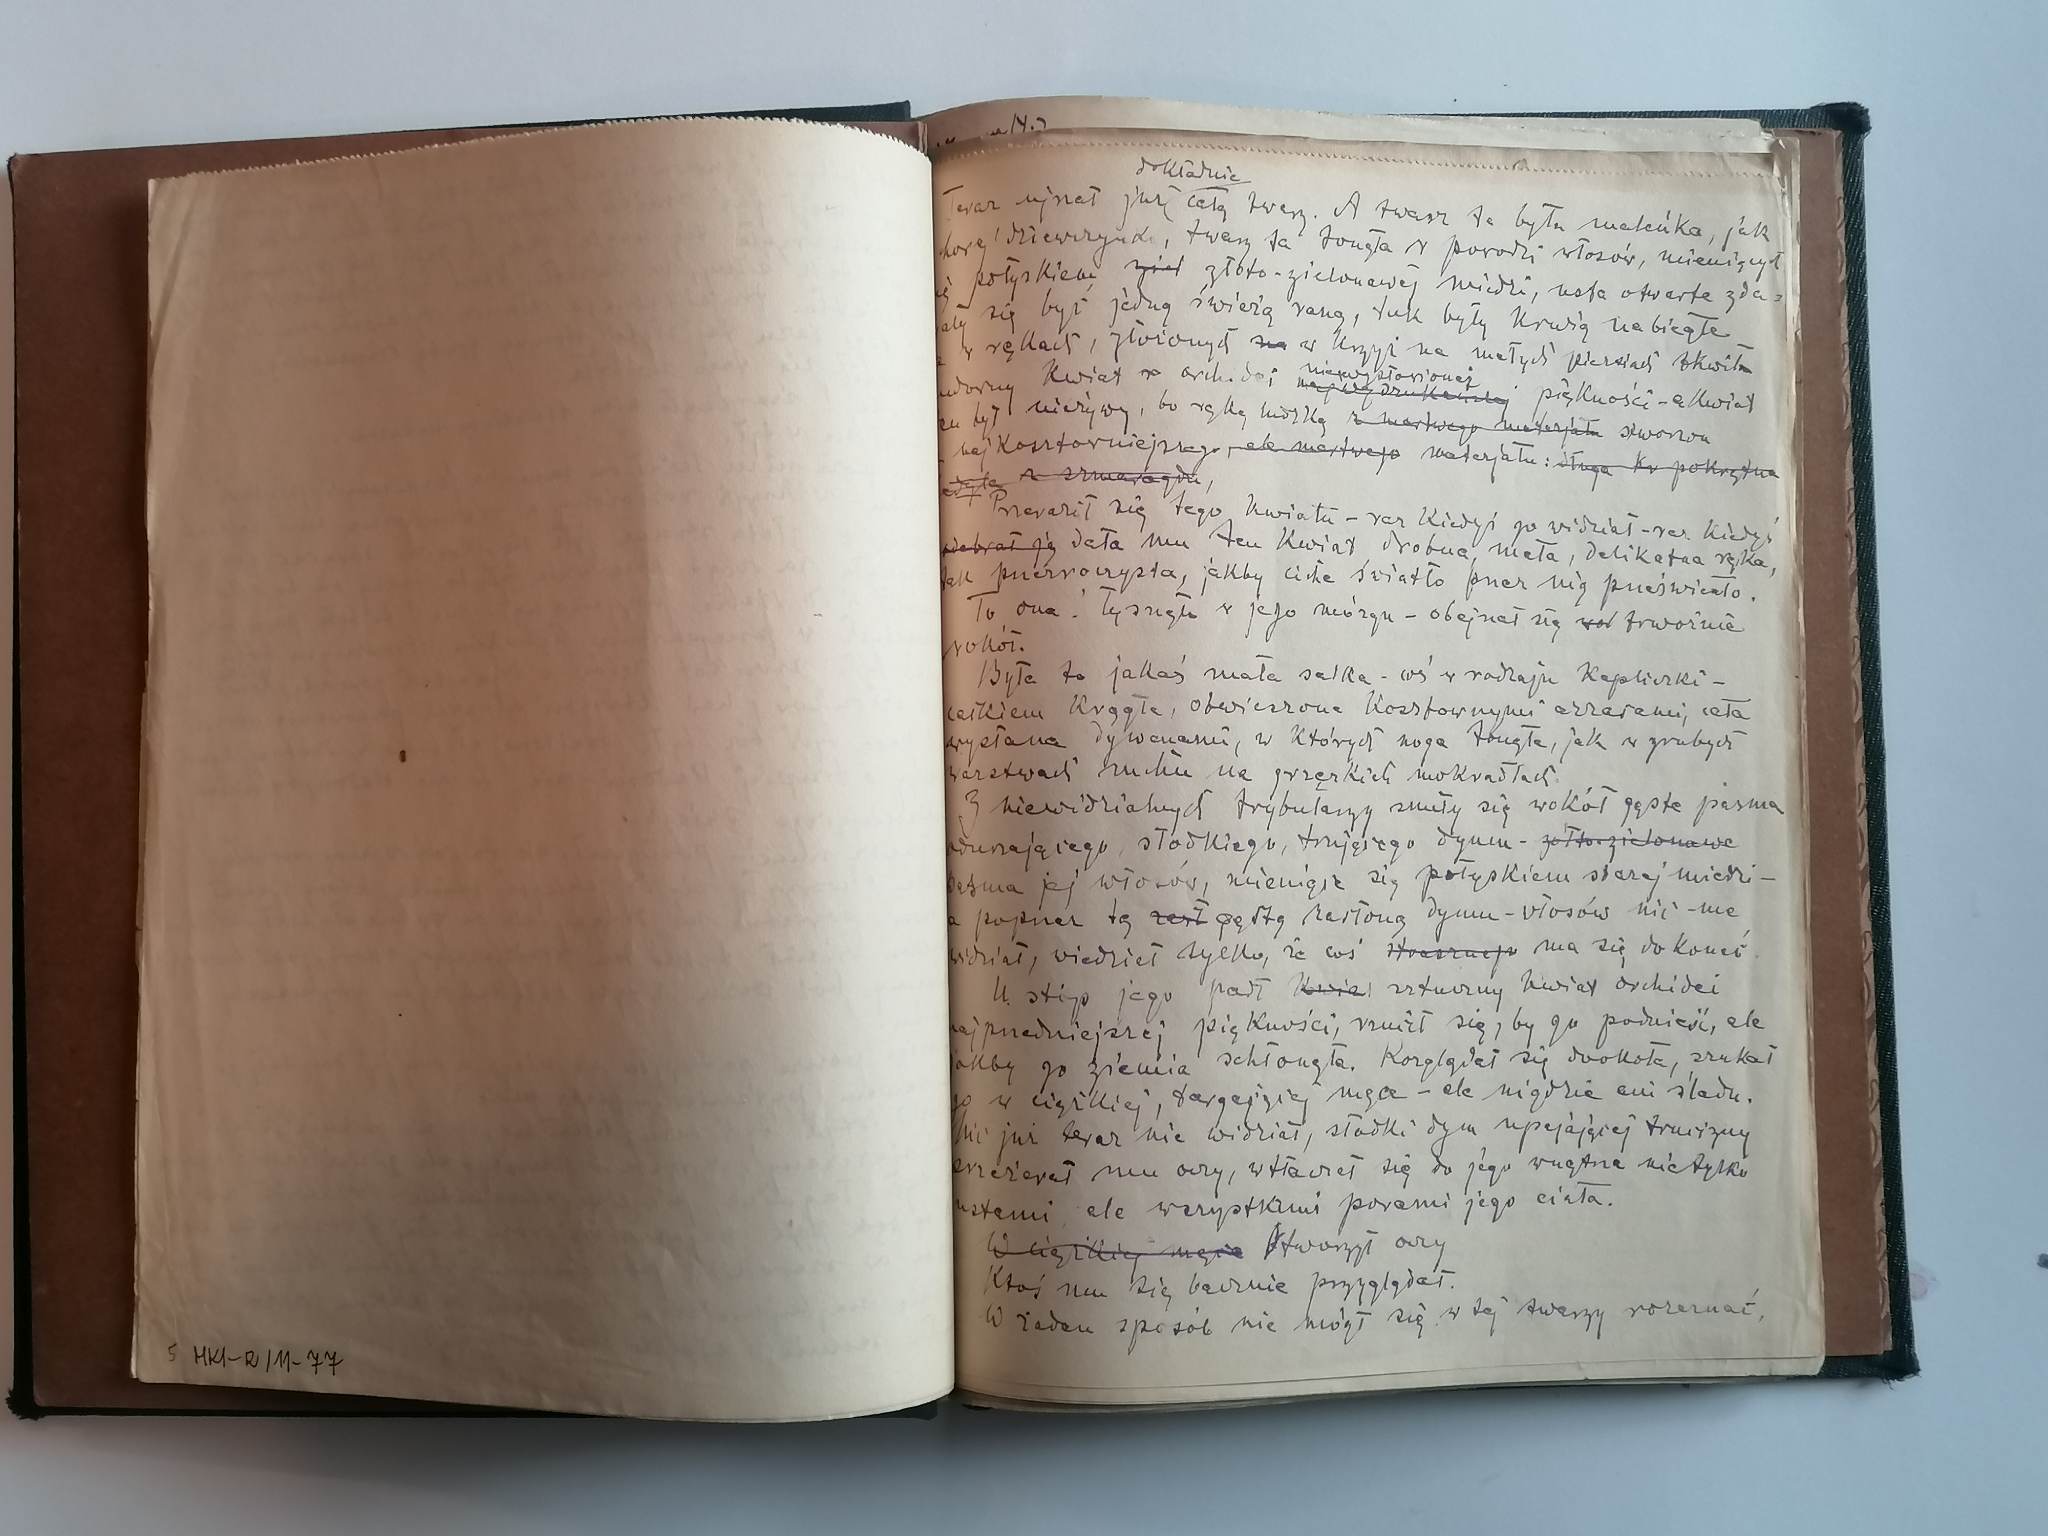 dokładnie
Teraz ujrzał już całą twarz. A twarz ta była maleńka, jak
chorej dziewczynki, twarz ta tonęła w powodzi włosów, mieniących
się połyskiem ziel złoto-zielonawej miedzi, usta otwarte zda-
wały się być jedną świeżą raną, tak były krwią nabiegłe
a w rękach, złożonych na w krzyż na małych piersiach tkwił
cudowny kwiat orchidei niewysłowionej
piękności - a kwiat
ten był nieżywy, bo ręką ludzką z martwego materjału stworzon
z najkosztowniejszego, ale martwego materjału: długa pokrętna
łodyga z szmaragdu,
Przeraził się tego kwiatu - raz kiedyś go widział - raz kiedyś
odebrał ją dała mu ten kwiat drobna, mała, delikatna rączka,
tak przezroczysta, jakby ciche światło przez nią prześwieało.
To ona! łysnęło w jego mózgu - obejrzał się wok trwożnie
wokół.
Była to jakaś mała salka - coś w rodzaju kapliczki -
całkiem krągła, obwieszona kosztownymi arrasami, cała
wysłana dywanami, w których noga tonęła, jak w grubych
warstwach mchu na grzęzkich mokradłach.
Z niewidzialnych trybularzy snuły się wokół gęste pasma
odurzającego, słodkiego, trującego dymu - żółto-zielonawe
pasma jej włosów, mieniące się połyskiem starej miedzi -
a poprzez tą zasł gęstą zasłoną dymu - włosów nic - nie
widział, wiedział tylko, że coś strasznego ma się dokonać.
U stóp jego padł kwiat sztuczny kwiat orchidei
najprzedniejszej piękności, rzucił się, by go podnieść, ale
jakby go ziemia schłonęła. Rozglądał się dookoła, szukał
go w ciężkiej, targającej męce - ale nigdzie ani śladu.
Nic już teraz nie widział, słodki dym upajającej trucizny
przeżerał mu oczy, wtłaczał się do jego wnętrza nietylko
ustami, ale wszystkimi porami jego ciała.
W ciężkiej męce Otworzył oczy
Ktoś mu się bacznie przyglądał.
W żaden sposób nie mógł się w tej twarzy rozeznać,
5 HKI-R/11-77